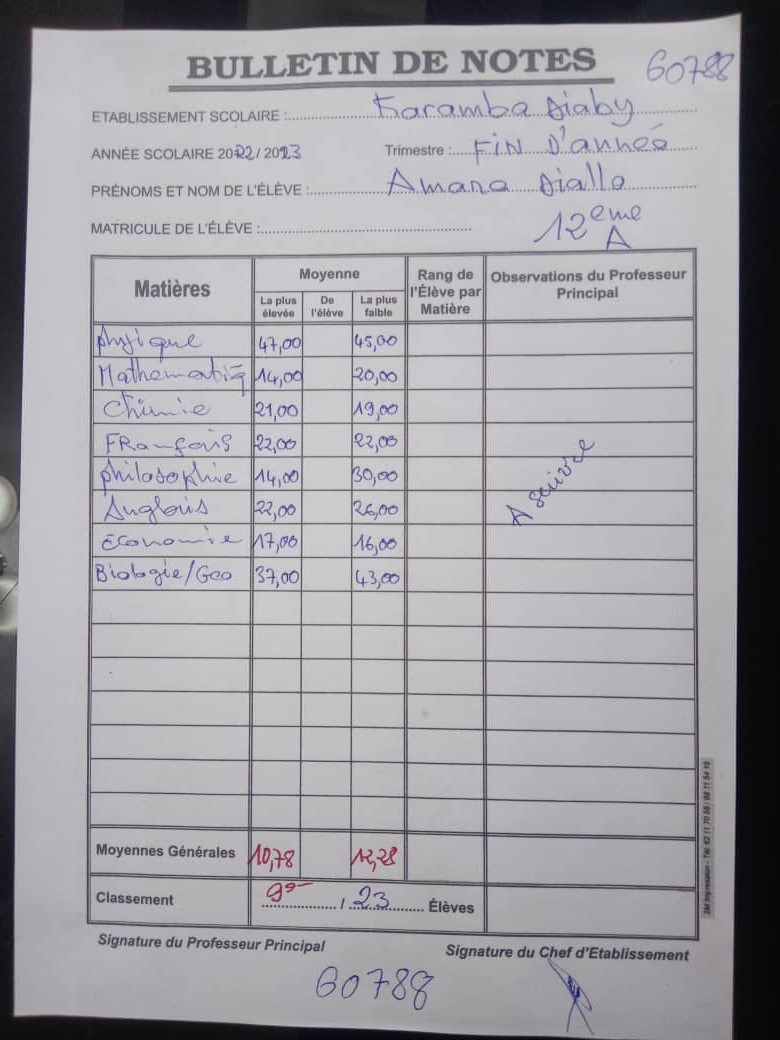 BULLETIN DE NOTES 60788
ETABLISSEMENT SCOLAIRE : Karamba Diaby
ANNÉE SCOLAIRE 2022 / 2023 Trimestre : FIN D'année
PRÉNOMS ET NOM DE L'ÉLÈVE : Amara Diallo
MATRICULE DE L'ÉLÈVE : 12eme A
Matières Moyenne Rang de l'Élève par Matière Observations du Professeur Principal
La plus élevée De l'élève La plus faible
physique 47,00 45,00
Mathématiq 14,00 20,00
Chimie 21,00 19,00
FRançais 22,00 22,00
philosophie 14,00 30,00
Anglais 22,00 26,00
Economie 17,00 16,00
Biologie/Geo 37,00 43,00
A suivre
Moyennes Générales 10,78 12,28
Classement 9e / 23 Élèves
Signature du Professeur Principal Signature du Chef d'Etablissement
60788